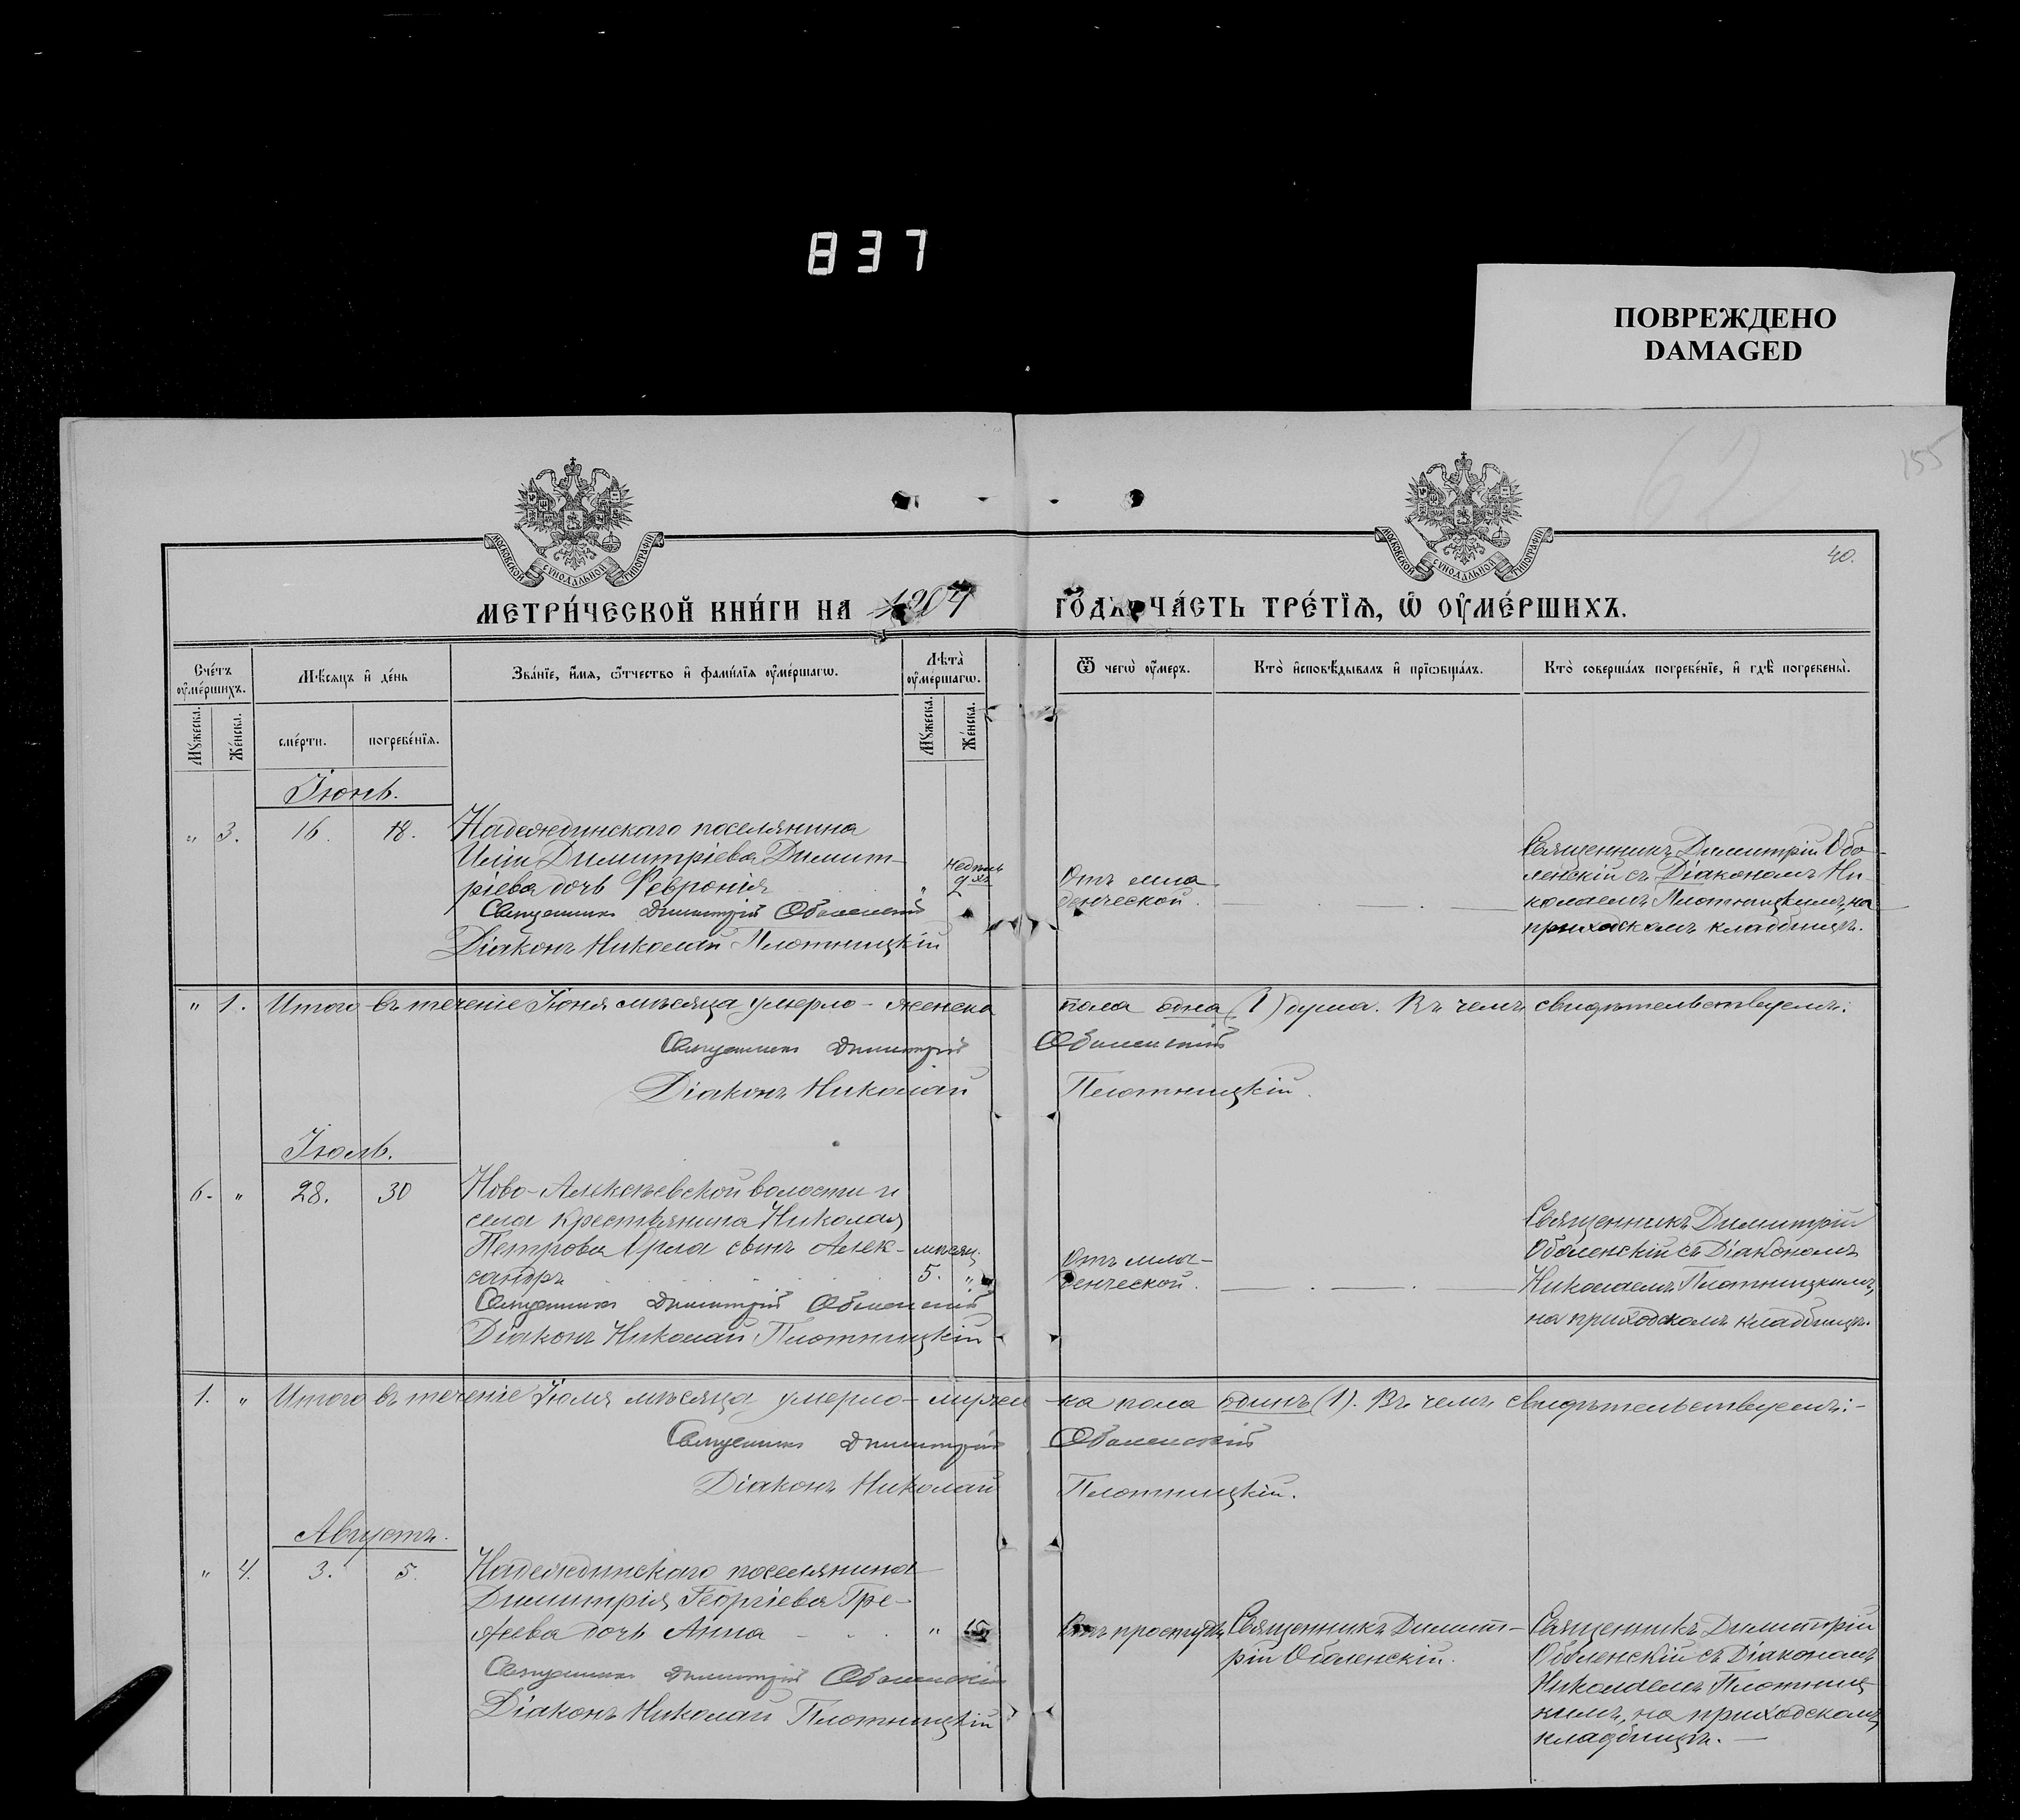 837
ПОВРЕЖДЕНО
DAMAGED
155
62
40.
МОСКОВСКОЙ СУНОДАЛЬНОЙ ТИПОГРАФІИ
МОСКОВСКОЙ СУНОДАЛЬНОЙ ТИПОГРАФІИ
МЕТРИ́ЧЕСКОЙ КНИ́ГИ НА 1904 ГО́ДЪ, ЧА́СТЬ ТРЕ́ТЇѦ, Ѽ ОУ҆МЕ́РШИХЪ.
Сче́тъ оу҆ме́ршихъ.
Мѣ́сяцъ и҆ де́нь
Зва́нїе, и҆́мѧ, ѻ҆́тчество и҆ фами́лїѧ оу҆ме́ршагѡ.
Лѣта̀ оу҆ме́ршагѡ.
Ѿ чегѡ̀ оу҆́меръ.
Кто̀ и҆сповѣ́дывалъ и҆ прїѡбща́лъ.
Кто̀ соверша́лъ погребе́нїе, и҆ гдѣ̀ погребены̀.
Мꙋ́жеска.
Же́нска.
сме́рти.
погребе́нїѧ.
Мꙋ́жеска.
Же́нска.
Іюнь.
" 3. 16. 18. Надеждинскаго поселянина
Иліи Димитріева Димит-
ріева дочь Февронія
Священникъ Димитрій Оболенскій
Діаконъ Николай Плотницкій
Отъ мла-
денческой.
Священникъ Димитрій Обо-
ленскій съ Діакономъ Ни-
колаемъ Плотницкимъ, на
приходскомъ кладбищѣ.
" 1. Итого въ теченіе Іюня мѣсяца умерло - женска пола одна (1) душа. Въ чемъ свидѣтельствуемъ:
Священникъ Димитрій Оболенскій
Діаконъ Николай Плотницкій.
Іюль.
6. " 28. 30 Ново-Алексѣевской волости и
села крестьянина Николая
Петрова Орла сынъ Алек-
сандръ
мѣсяц.
5. "
Священникъ Димитрій Оболенскій
Діаконъ Николай Плотницкій
Отъ мла-
денческой.
Священникъ Димитрій
Оболенскій съ Діакономъ
Николаемъ Плотницкимъ,
на приходскомъ кладбищѣ.
1. " Итого въ теченіе Іюля мѣсяца умерло - мужеска пола одинъ (1). Въ чемъ свидѣтельствуемъ:-
Священникъ Димитрій Оболенскій
Діаконъ Николай Плотницкій.
Августъ.
" 4. 3. 5. Надеждинскаго поселянина
Димитрія Георгіева Гре-
дочь Анна "
Священникъ Димитрій Оболенскій
Діаконъ Николай Плотницкій
Отъ простуды
Священникъ Димит-
рій Оболенскій.
Священникъ Димитрій
Оболенскій съ Діакономъ
Николаемъ Плотниц-
кимъ, на приходскомъ
кладбищѣ.